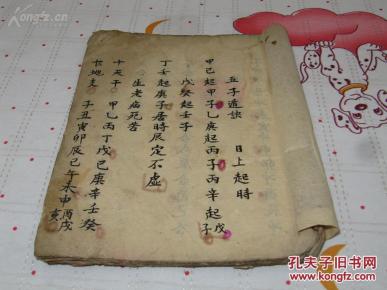 五子遁訣 日上起時
甲己起甲子乙庚起丙子丙辛起戊子
戊癸起壬子
丁壬起庚子居時辰定不虛
生老病死苦
十天干 甲乙丙丁戊己庚辛壬癸
地支 子丑寅卯辰巳午未申酉戌亥
kongfz.cn
孔夫子旧书网